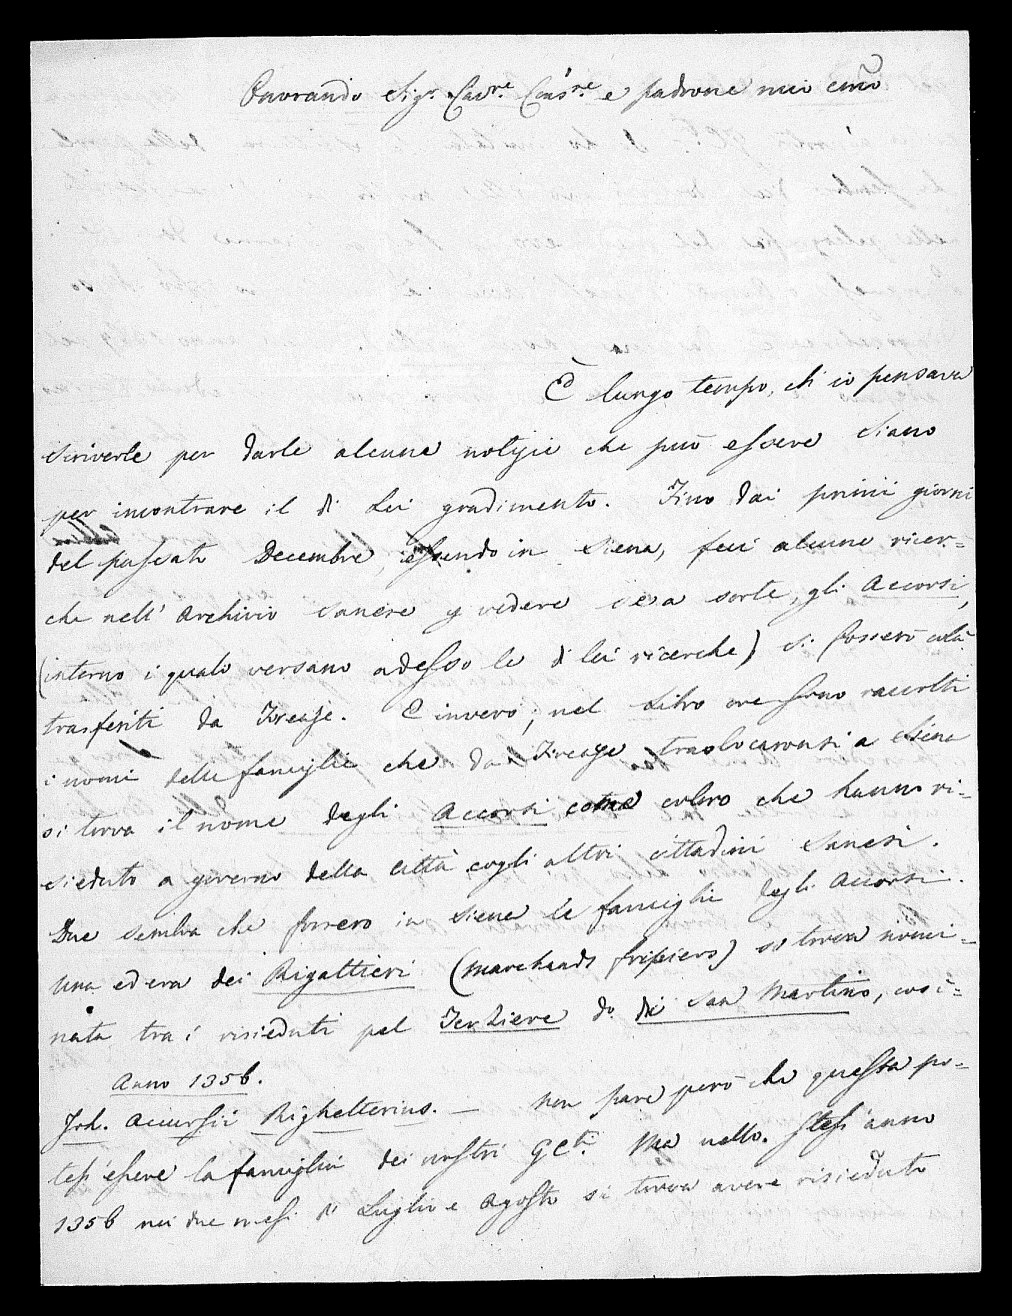 Onorando Sigr. Cavre. Consre e padrone mio cmo
È lungo tempo, ch'io pensava
scriverle per darle alcune notizie che può essere siano
per incontrare il di Lei gradimento. Fino dai primi giorni
del passato Decembre, essendo in Siena, feci alcune ricer=
che nell'Archivio Sanese p vedere se a sorte, gli Accorsi,
(intorno i quali versano adesso le di lei ricerche) si fossero colà
trasferiti da Firenze. E invero, nel Libro ove sono raccolti
i nomi delle famiglie che da Firenze traslocaronsi a Siena
si trova il nome degli Accorsi come coloro che hanno ri=
sieduto a governo della città cogli altri cittadini Sanesi.
Due sembra che fossero in Siena le famiglie degli Accorsi.
Una ed era dei Rigattieri (marchands fripiers) si trova nomi=
nata tra i risieduti pel Terziere di San Martino, così =
Anno 1356.
Joh. Accursii Righetterius. — non pare però che questa po=
tess'essere la famiglia dei nostri GCti. Ma nello stess'anno
1356 nei due mesi di Luglio e Agosto si trova avere risieduto